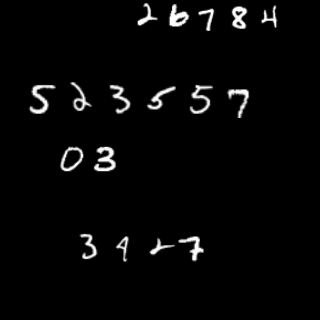 26784
523557
03
3427